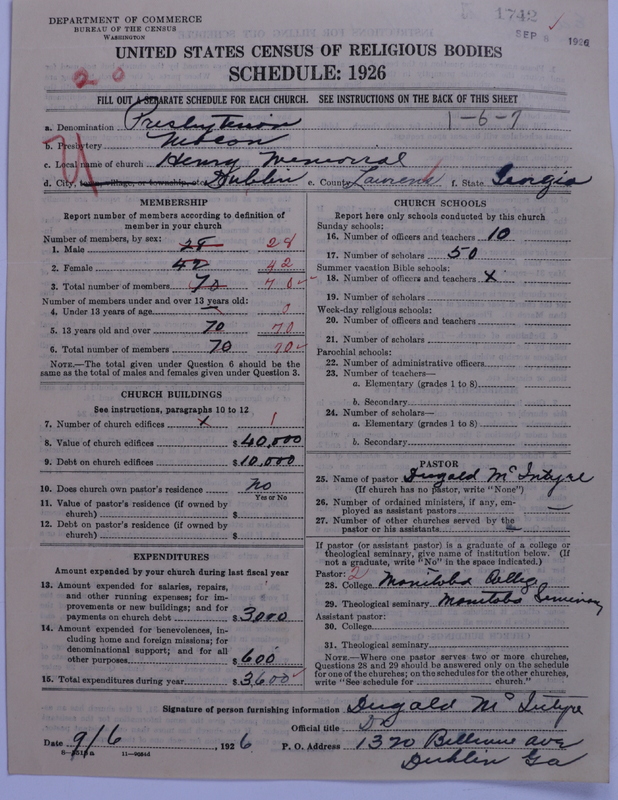 DEPARTMENT OF COMMERCE
BUREAU OF THE CENSUS
WASHINGTON
1742
SEP 8 1926
UNITED STATES CENSUS OF RELIGIOUS BODIES
SCHEDULE: 1926
20
FILL OUT A SEPARATE SCHEDULE FOR EACH CHURCH. SEE INSTRUCTIONS ON THE BACK OF THIS SHEET
a. Denomination Presbyterian 1-6-7
b. Presbytery Macon
71
c. Local name of church Henry Memorial
d. City, town, village, or township, etc. Dublin e. County Laurens f. State Georgia
MEMBERSHIP
Report number of members according to definition of
member in your church
Number of members, by sex:
1. Male 28 28
2. Female 42 42
3. Total number of members 70 70
Number of members under and over 13 years old:
4. Under 13 years of age
5. 13 years old and over 70 70
6. Total number of members 70 70
NOTE.—The total given under Question 6 should be
same as the total of males and females given under Question 3.
CHURCH BUILDINGS
See instructions, paragraphs 10 to 12
7. Number of church edifices x 1
8. Value of church edifices $ 40,000
9. Debt on church edifices $ 10,000
10. Does church own pastor's residence No
Yes or No
11. Value of pastor's residence (if owned by
church) $
12. Debt on pastor's residence (if owned by
church) $
EXPENDITURES
Amount expended by your church during last fiscal year
13. Amount expended for salaries, repairs,
and other running expenses; for im-
provements or new buildings; and for
payments on church debt $ 3,000
14. Amount expended for benevolences, in-
cluding home and foreign missions; for
denominational support; and for all
other purposes $ 600
15. Total expenditures during year $ 3,600
CHURCH SCHOOLS
Report here only schools conducted by this church
Sunday schools:
16. Number of officers and teachers 10
17. Number of scholars 50
Summer vacation Bible schools:
18. Number of officers and teachers x
19. Number of scholars
Week-day religious schools:
20. Number of officers and teachers
21. Number of scholars
Parochial schools:
22. Number of administrative officers
23. Number of teachers—
a. Elementary (grades 1 to 8)
b. Secondary
24. Number of scholars—
a. Elementary (grades 1 to 8)
b. Secondary
PASTOR
25. Name of pastor Dugald McIntyre
(If church has no pastor, write "None")
26. Number of ordained ministers, if any, em-
ployed as assistant pastors —
27. Number of other churches served by the
pastor or his assistants
If pastor (or assistant pastor) is a graduate of a college or
theological seminary, give name of institution below. (If
not a graduate, write "No" in the space indicated.)
Pastor: 2
28. College Manitoba College
29. Theological seminary Manitoba Seminary
Assistant pastor:
30. College
31. Theological seminary
NOTE.—Where one pastor serves two or more churches,
Questions 28 and 29 should be answered only on the schedule
for one of the churches; on the schedules for the other churches,
write "See schedule for church."
Signature of person furnishing information Dugald McIntyre
Official title
Date 9/6, 1926 P. O. Address 1320 Bellevue ave
Dublin Ga